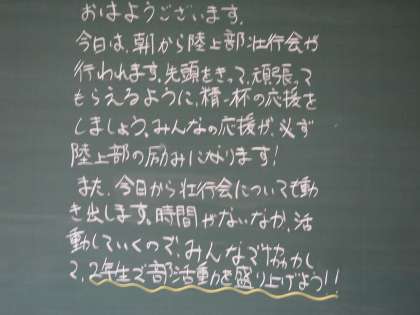 おはようございます。
今日は、朝から陸上部壮行会が
行われます。先頭をきって、頑張って
もらえるように、精一杯の応援を
しましょう。みんなの応援が、必ず
陸上部の励みになります!
また、今日から壮行会についても動
き出します。時間がないなか、活
動していくので、みんなで協力し
て、2年生で部活動を盛り上げよう!!